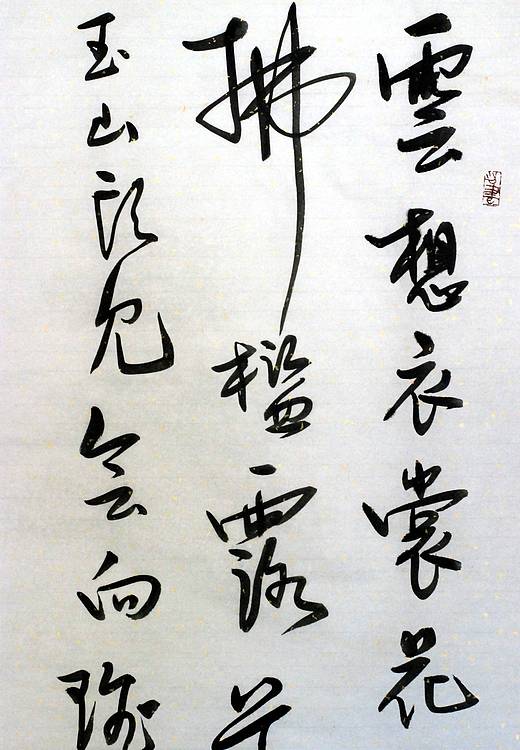 雲想衣裳花
拂檻露
玉山頭見会向瑤